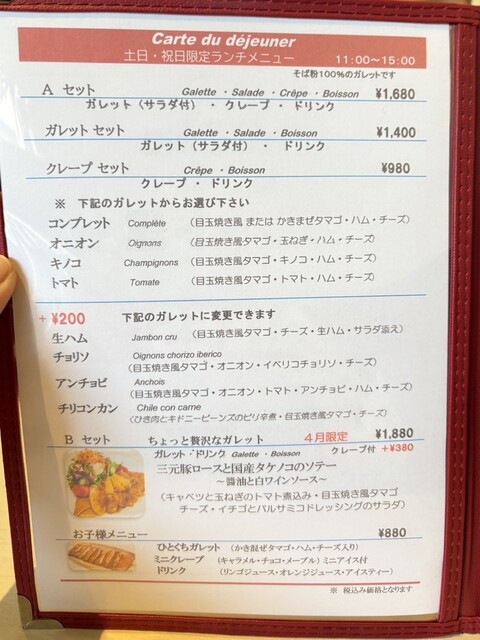 Carte du déjeuner
土日・祝日限定ランチメニュー 11:00～15:00
そば粉100％のガレットです
A セット Galette ・Salade ・Crêpe ・Boisson ¥1,680
ガレット（サラダ付） ・ クレープ ・ ドリンク
ガレット セット Galette ・Salade ・Boisson ¥1,400
ガレット（サラダ付） ・ ドリンク
クレープ セット Crêpe ・Boisson ¥980
クレープ ・ ドリンク
※ 下記のガレットからお選び下さい
コンプレット Complète （目玉焼き風 または かきまぜタマゴ・ハム・チーズ）
オニオン Oignons （目玉焼き風タマゴ・玉ねぎ・ハム・チーズ）
キノコ Champignons （目玉焼き風タマゴ・キノコ・ハム・チーズ）
トマト Tomate （目玉焼き風タマゴ・トマト・ハム・チーズ）
+ ¥200 下記のガレットに変更できます
生ハム Jambon cru （目玉焼き風タマゴ・チーズ・生ハム・サラダ添え）
チョリソ Oignons chorizo iberico
（目玉焼き風タマゴ・オニオン・イベリコチョリソ・チーズ）
アンチョビ Anchois
（目玉焼き風タマゴ・オニオン・トマト・アンチョビ・ハム・チーズ）
チリコンカン Chile con carne
（ひき肉とキドニービーンズのピリ辛煮・目玉焼き風タマゴ・チーズ）
B セット ちょっと贅沢なガレット 4月限定 ¥1,880
ガレット・ドリンク Galette ・Boisson クレープ付 +¥380
三元豚ロースと国産タケノコのソテー
～醤油と白ワインソース～
（キャベツと玉ねぎのトマト煮込み・目玉焼き風タマゴ
チーズ・イチゴとバルサミコドレッシングのサラダ）
お子様メニュー ¥880
ひとくちガレット （かき混ぜタマゴ・ハム・チーズ入り）
ミニクレープ （キャラメル・チョコ・メープル）ミニアイス付
ドリンク （リンゴジュース・オレンジジュース・アイスティー）
※ 税込み価格となります